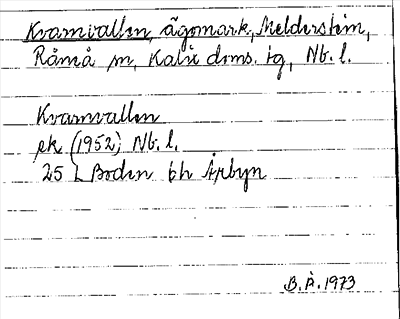 Kvarnvallen, ägomark, Melderstein,
Råneå sn, Kalix doms. tg, Nb. l.
Kvarnvallen
ek (1952) Nb. l.
25 L Boden 6h Avbyn
B.Å. 1973